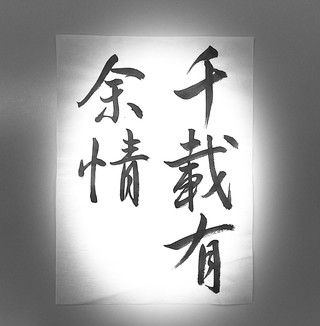 千載有
余情